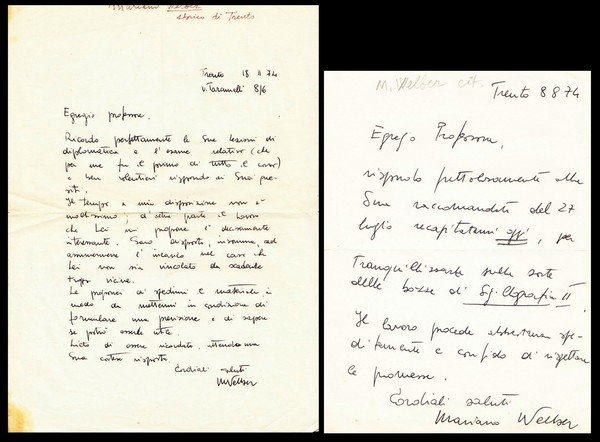 Mariano Welber
storico di Trento
Trento 18 11 74
v. Taramelli 8/6
Egregio professore,
Ricordo perfettamente le Sue lezioni di
diplomatica e l'esame relativo (che
per me fu il primo di tutto il corso)
e ben volentieri rispondo ai Suoi que-
siti.
Il tempo a mia disposizione non è
moltissimo; d'altra parte il lavoro
che Lei mi propone è decisamente
interessante. Sarei disposto, insomma, ad
assumermi l'incarico nel caso che
Lei non sia vincolato da scadenze
troppo vicine.
Le proporrei di spedirmi il materiale in
modo da mettermi in condizione di
formulare una previsione e di sapere
se potrò esserle utile.
Lieto di essere ricordato, attendo una
Sua cortese risposta.
Cordiali saluti
MWelber
M. Welber cit.
Trento 8 8 74
Egregio Professore,
rispondo frettolosamente alla
Sua raccomandata del 27
luglio recapitatami oggi, per
tranquillizzarla sulla sorte
delle bozze di Sfragistica II
Il lavoro procede abbastanza spe-
ditamente e confido di rispettare
le promesse.
Cordiali saluti
Mariano Welber